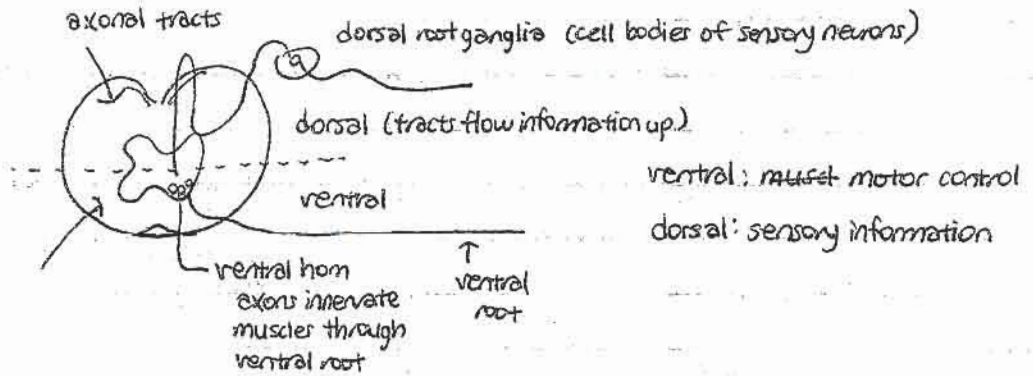 axonal tracts
dorsal root ganglia (cell bodies of sensory neurons)
dorsal (tracts flow information up)
ventral
ventral: muscl motor control
dorsal: sensory information
ventral horn
axons innervate
muscles through
ventral root
ventral
root